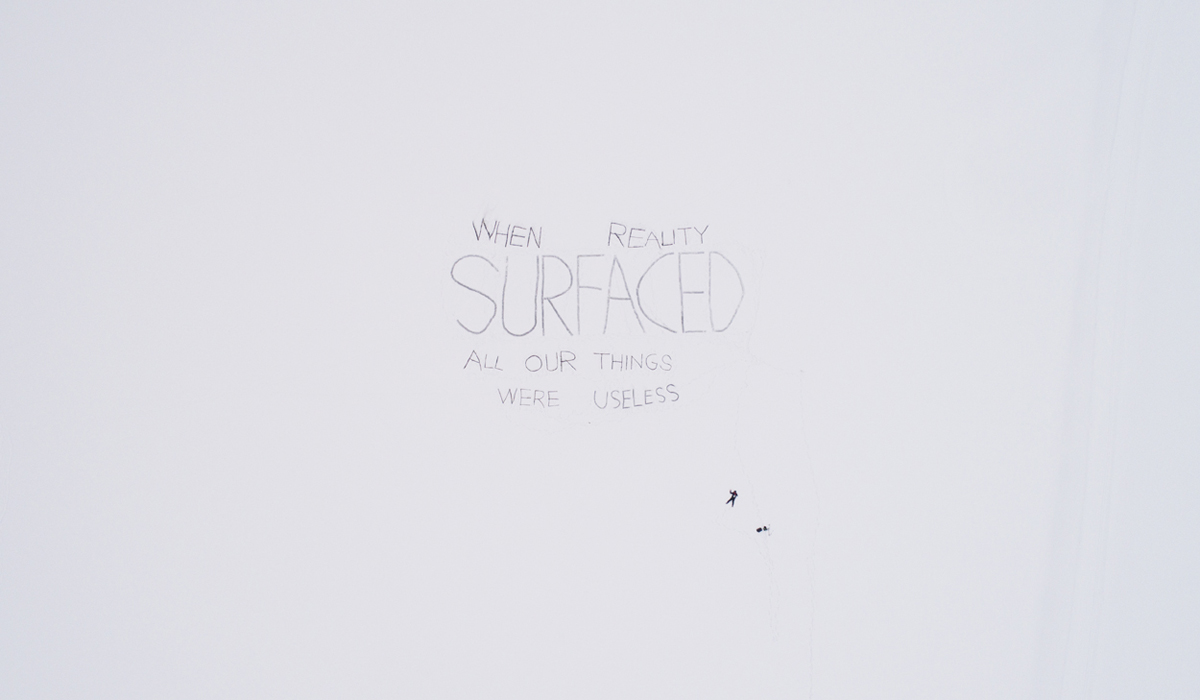 WHEN REALITY
SURFACED
ALL OUR THINGS
WERE USELESS